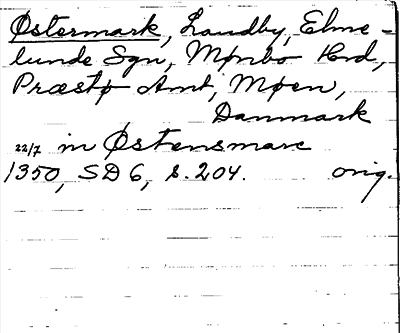 Østermark, Landby, Elme-
lunde Sgn, Mønbo Hrd,
Præstø Amt, Møen,
Danmark
22/7 in Østensmarc
1350, SD 6, s. 204. orig.